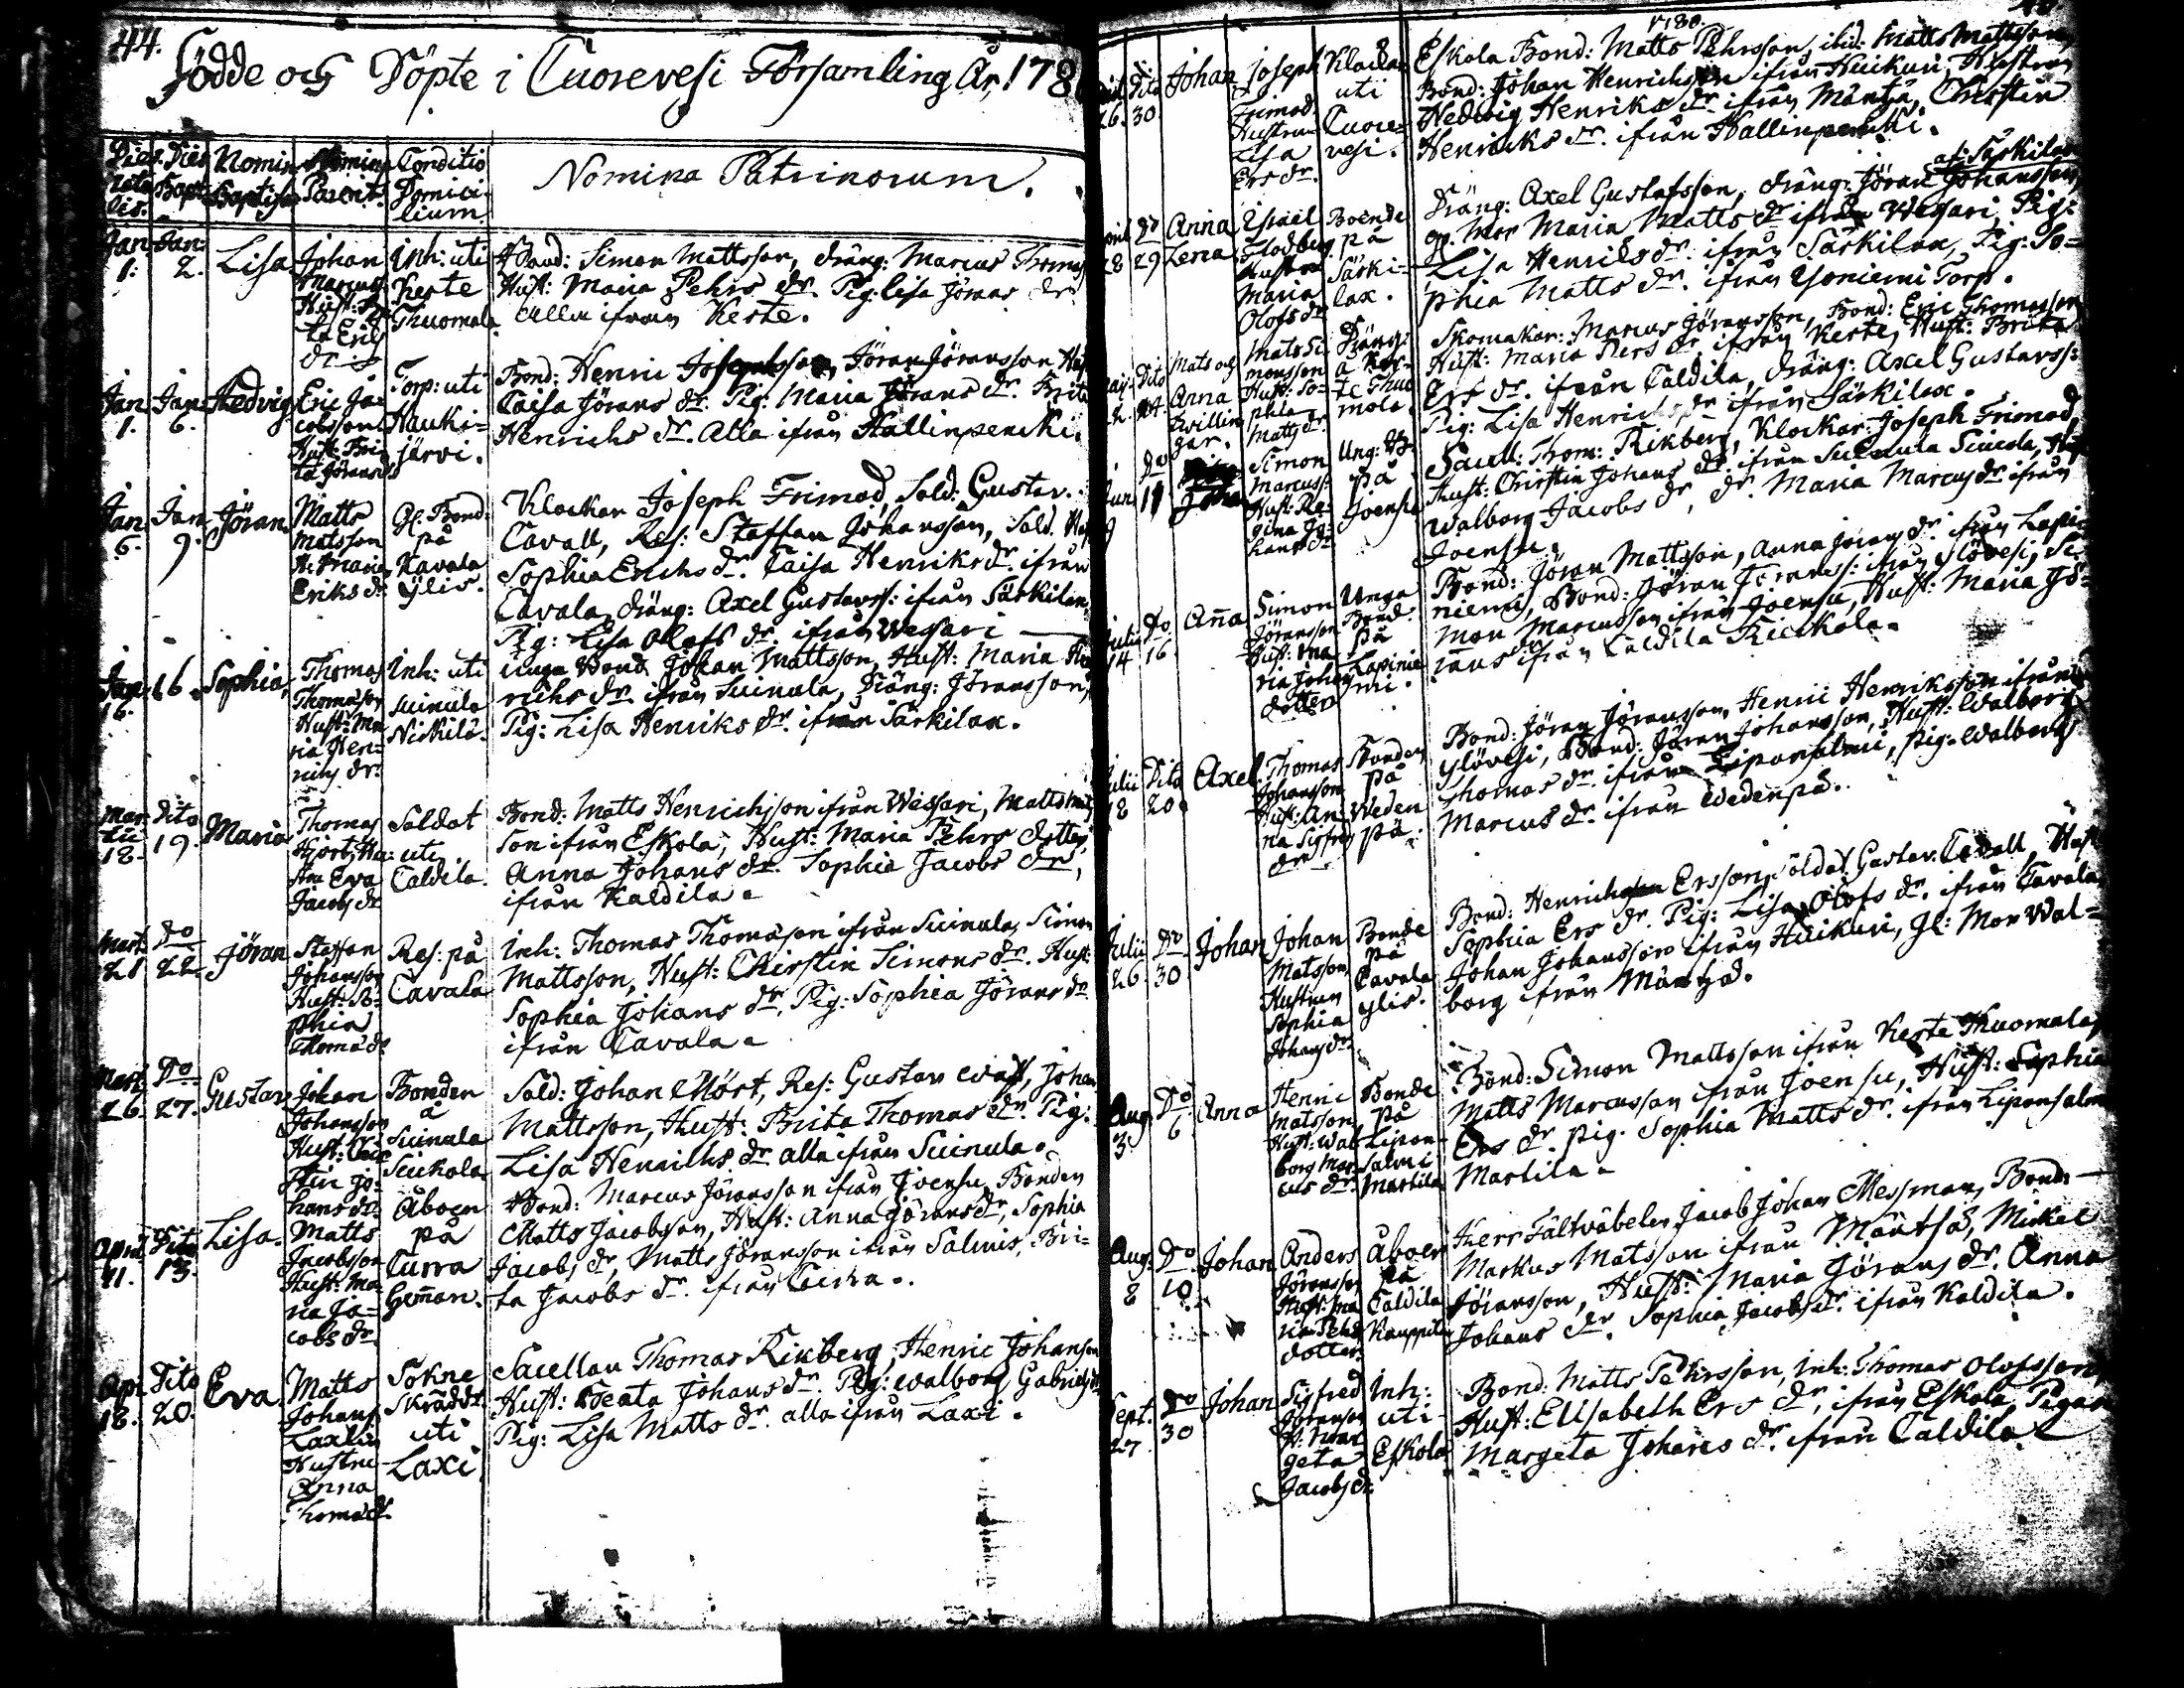 44.
Födde och Döpte i Cuorevesi Församling År, 178
Dies Nata lis. Dies Bapt. Nomin Baptisa Nomina Parent. Conditio Domici- lium
Nomina Patrinorum.
Jan. 1. Jan. 2. Lisa
Johan
Marcuss.
Hust:
ta Erics
dr
Inh: uti
Keste
Thuomala
Bond: Simon Mattsson, dräng: Marcus Thomas
Hust: Maria Pehrs dr. Pig: Lisa Jörans dr
alla ifrån Keste.
Jan. 1. Jan. 6. Hedvig
Eric Ja-
cobsson
Hust: Bri-
ta Jörans
Torp: uti
Hauki-
järvi.
Bond: Henric Josephsson, Jöran Jöransson
Caisa Jörans dr. Pig: Maria Jörans dr. Brita
Henrichs dr. Alla ifrån Hallinpencki.
Jan. 6. Jan. 9. Jöran
Matts
Matsson
H: Maria
Eriks dr
Gl: Bond:
på
Kavala
Ylis.
Klockar Joseph Frimod, Sold: Gustav
Cavall, Res: Staffan Johansson, Sold.
Sophia Erichs dr. Caisa Henriks dr. ifrån
Cavala, dräng: Axel Gustavss: ifrån Särkilax,
Pig: Lisa Olofs dr. ifrån Wessari
Jan. 16. 16. Sophia
Thomas
Thomasson
Hust: Ma
ria Hen-
richs dr.
Inh: uti
Suinula
Niskilä.
Unga Bond Johan Mattsson, Hust: Maria Hen
richs dr. ifrån Suinula, Dräng: Jöransson,
Pig: Lisa Henriks dr. ifrån Särkilax.
Mar- tii 18. Dito 19. Maria
Thomas
Hjort, Hu-
stru Eva
Jacobs dr
Soldat
uti
Caldila.
Bond: Matts Henrichsson ifrån Wessari, Matts
son ifrån Eskola, Hust: Maria Pehrs dotter,
Anna Johans dr. Sophia Jacobs dr,
ifrån Kaldila.
Mart. 21 Do 22. Jöran
Steffan
Johansson
Hust: So-
phia
Thoma dr
Res: på
Cavala
Inh: Thomas Thomasson ifrån Suinula, Simon
Mattsson, Hust: Christin Simons dr. Hust:
Sophia Johans dr, Pig: Sophia Jörans dr
ifrån Cavala.
Mart. 26. Do 27. Gustav
Johan
Johansson
Hust: Chri
stin Jo-
hans dr.
Bonden
å
Suinula
Suikola
Sold: Johan Mört, Res: Gustav Wass, Johan
Mattsson, Hust: Brita Thomas dr. Pig:
Lisa Henrichs dr alla ifrån Suinula.
April 11. Dito 13. Lisa.
Matts
Jacobsson
Hust: Ma-
ria Ja-
cobs dr.
Åboen
på
Curra
Geman.
Bond: Marcus Jöransson ifrån Joensu, Bonden
Matts Jacobsson, Hust: Anna Jörans dr, Sophia
Jacobs dr, Matts Jöransson ifrån Salmis, Bri-
ta Jacobs dr. ifrån Curra.
Apr. 18. Dito 20. Eva
Matts
Johans
Laxlin
Hustru
Anna
Thoma dr
Sokne
Skräddr
uti
Laxi
Sacellan Thomas Rikberg, Henric Johansson
Hust: Beata Johans dr. Pig: Walborg Gabriels dr
Pig: Lisa Matts dr. alla ifrån Laxi.
1780.
26. Dito 30. Johan
Joseph
Frimod
Hustrun
Lisa
Ers dr.
Klockar
uti
Cuore-
vesi.
Eskola Bond: Matts Pehrsson, ibid: Matts Mattsson
Bond: Johan Henrichsson ifrån Huikuri, Hustrun
Hedvig Henriks dr. ifrån Mäntzä, Christin
Henricks dr. ifrån Hallinpencki.
28 do 29 Anna Lena
Israel
Flodberg
Hustru
Maria
Olofs dr
Boende
på
Särki-
lax.
af: Särkilax
Dräng: Axel Gustafsson, dräng: Jöran Johansson,
gp. Mor Maria Matts dr ifrån Wessari, Pig:
Lisa Henriks dr. ifrån Särkilax, Pig: So-
phia Matts dr. ifrån Yoniemi Torp.
Dito Mats och Anna twillin gar.
Mats Si
monsson
Hust: So-
phia
Matts dr
Dräng:
å Kes-
te Thuo
mola
Skomakar: Marcus Jöransson, Bond: Eric Thomasson
Hust: Maria Pers dr ifrån Keste, Hust: Brita
Ers dr. ifrån Caldila, dräng: Axel Gustavss:
Pig: Lisa Henrichs dr ifrån Särkilax.
Jun. 9 do 11 Johan
Simon
Marcuss:
Hust: Re-
gina Jo-
hans dr
Ung: B.
på
Joensu
Sacell: Thom: Rikberg, Klockar: Joseph Frimod,
Hust: Christin Johans dr. ifrån Suinula Suikola,
Walborg Jacobs dr, dr. Maria Marcus dr ifrån
Joensu.
Julii 14 Do 16 Ana
Simon
Jöransson
Hust: Ma
ria Johans
dotter
Unga
Bond
på
Lapinie
mi.
Bond: Jöran Mattsson, Anna Jörans dr. ifrån Lapi-
niemi, Bond: Jöran Jöranss: ifrån Ylövesi, Si-
mon Marcusson ifrån Joensu, Hust: Maria Jö-
rans dr ifrån Caldila Kickola.
Julii 18 Dito 20. Axel
Thomas
Johansson
Hust: An-
na Sigfrids
dr.
Bonden
på
Weden
pä.
Bond: Jöran Jöransson, Henric Henriksson ifrån
Ylövesi, Bond: Jöran Johansson, Hust: Walborg
Thomas dr. ifrån Liponsalmi, Pig: Walborg
Marcus dr. ifrån Wedenpä.
Julii 26 Do 30 Johan
Johan
Matsson
Hustrun
Sophia
Johans dr.
Bonde
på
Cavala
Ylis.
Bond: Henrich Ersson, Soldat Gustav Cavall, Hust
Sophia Ers dr. Pig: Lisa Olofs dr. ifrån Cavala
Johan Johansson ifrån Huikuri, Gl: Mor Wal-
borg ifrån Mäntzä.
Aug. 3. Do 6 Anna
Henric
Matsson
Hust: Wal-
borg Mar-
cus dr.
Bonde
på
Lipon-
salmi
Martila
Bond: Simon Mattsson ifrån Keste Thuomala,
Matts Marcusson ifrån Joensu, Hust: Sophia
Ers dr Pig. Sophia Matts dr. ifrån Liponsalmi
Martila.
Aug. 8 Do 10 Johan
Anders
Jöransson
Hust: Ma
ria Pehrs
dotter.
Åboer
på
Caldila
Kauppila
Herr Fältväbelen Jacob Johan Messman, Bond:
Markus Matsson ifrån Mäntsä, Mickel
Jöransson, Hust: Maria Jörans dr. Anna
Johans dr. Sophia Jacobs dr. ifrån Kaldila.
Sept. 27 Do 30 Johan
Sigfred
Jöransson
H: Mar
geta
Jacobs dr.
Inh:
uti
Eskola
Bond: Matts Pehrsson, Inh: Thomas Olofsson,
Hust: Elisabeth Ers dr, ifrån Eskola, Pigan
Margeta Johans dr. ifrån Caldila.